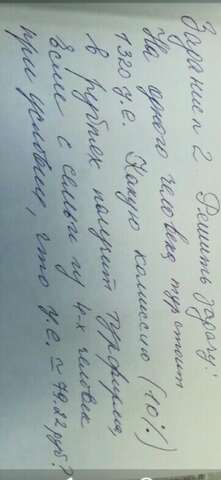 Задание n 2 Решить задачу:
На одного человека тур стоит
1320 у.е. Какую комиссию (10%)
в рублях получит турфирма,
если с семьи из 4-х человек
при условии, что у.е. = 79.22 руб?